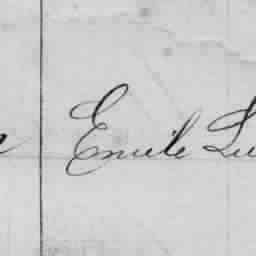 Emile Lu